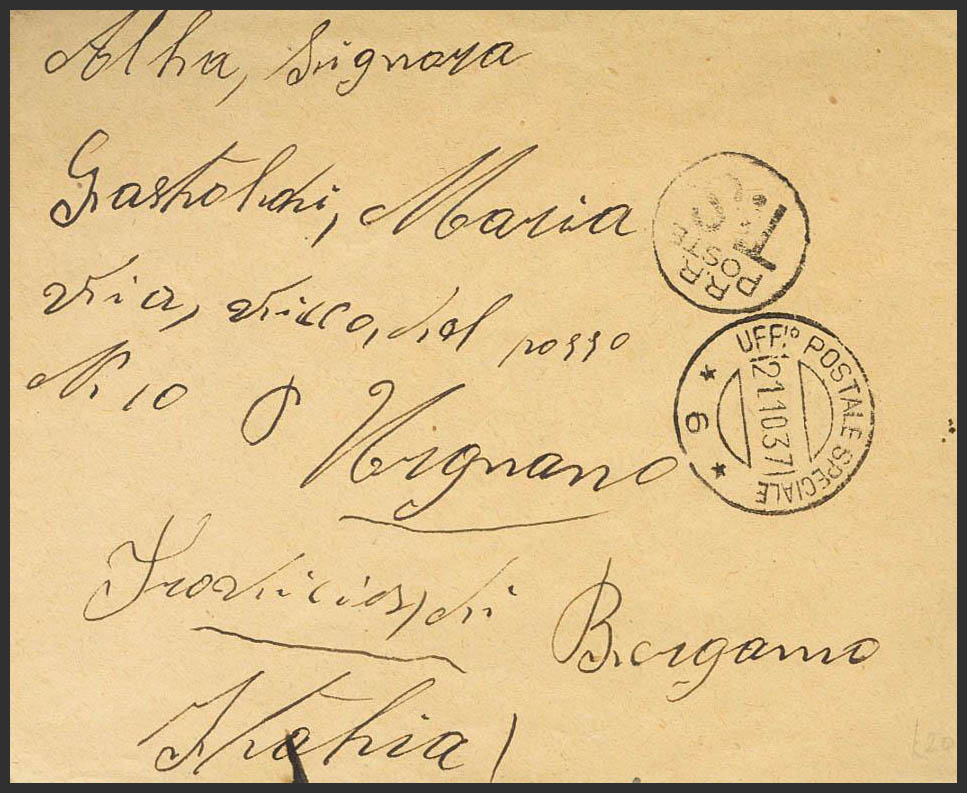 Alha, Signora
Gastoldi, Maria
Via, Vicco, del pozzo
N. 10 Urgnano
Provincia, di Bergamo
Itahia
R.R. POSTE
T
UFF.º POSTALE SPECIALE
21.10.37
* 6 *